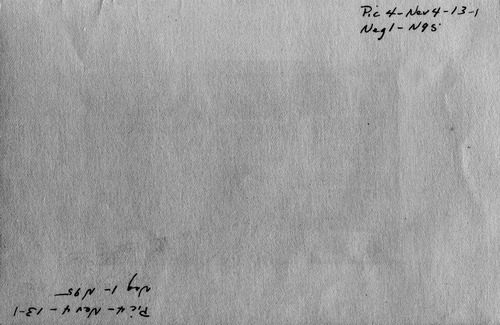 Pic 4-Nev 4-13-1
Neg 1-N95
Neg 1-N95
Pic 4-Nev 4-13-1